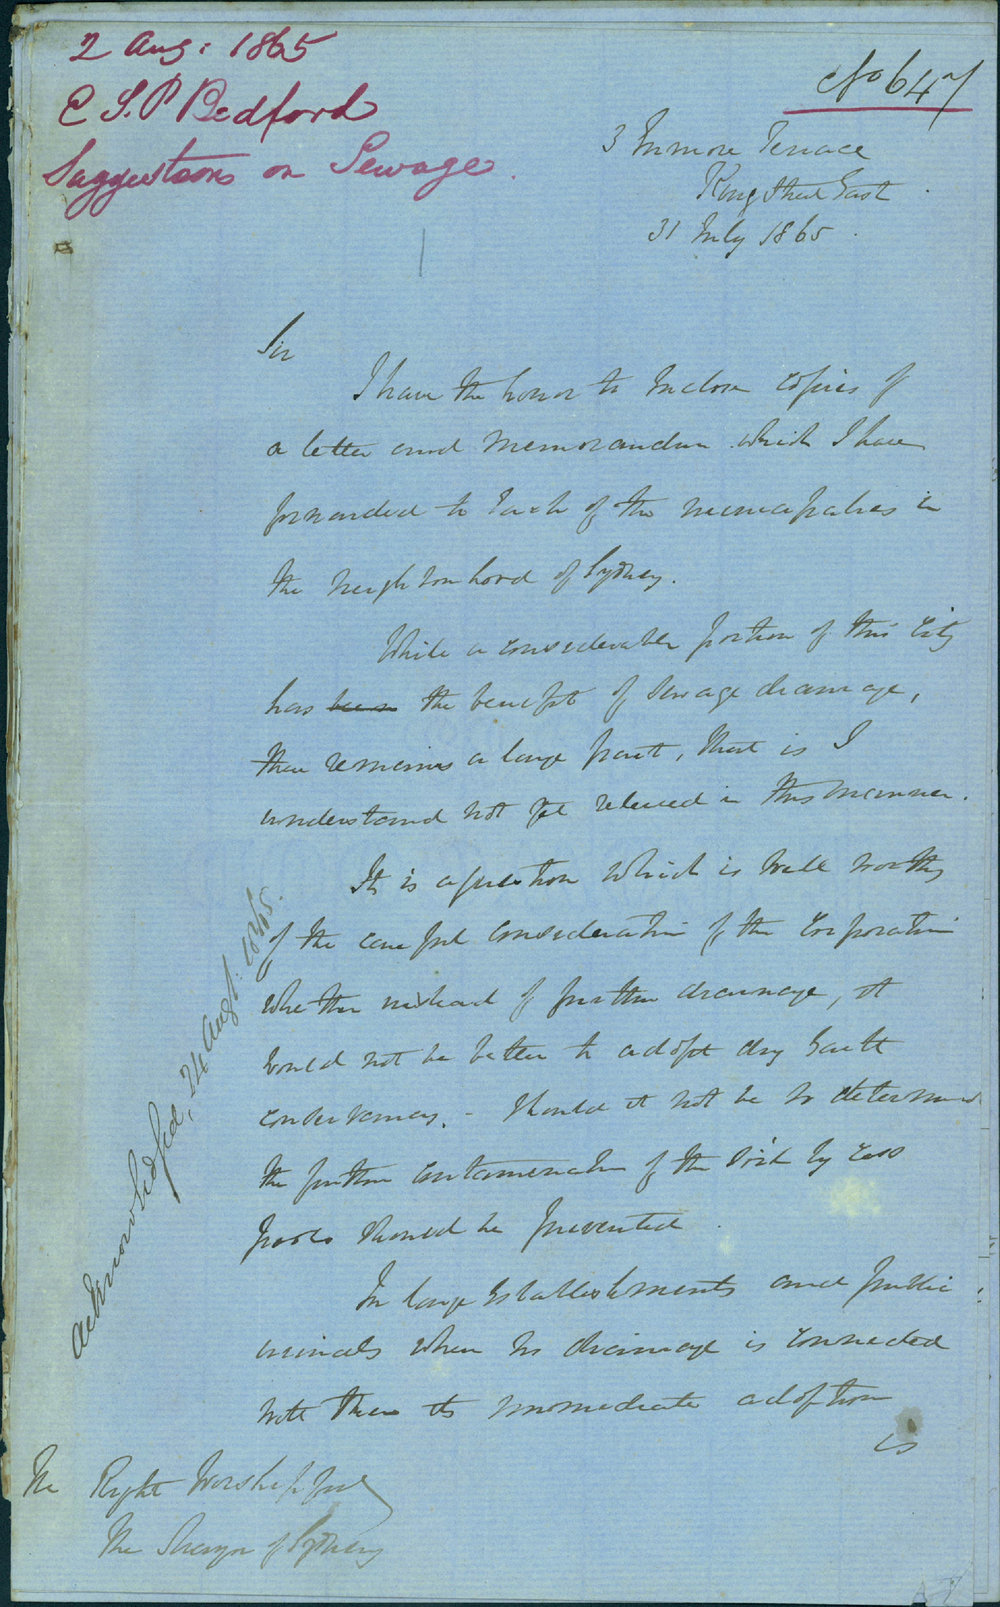 2 Aug: 1865
C S. P Bedford
Suggestions on Sewage.
No 647
3 Inmore Terrace
King Street East
31 July 1865.
Sir
I have the honor to Inclose copies of
a letter and Memorandum which I have
forwarded to Each of the municipalities in
the neighbourhood of Sydney.
While a considerable portion of this City
has been the benefit of sewage drainage,
there remains a large part, that is I
understand not yet relieved in this manner.
It is a question which is well worthy
of the careful consideration of the Corporation
whether instead of further drainage, it
would not be better to adopt dry Earth
conservancy. - Should it not be so determined
the further contamination of the soil by cess
pools should be prevented.
In large Establishments and public
urinals where no drainage is connected
with them its immediate adoption
is
The Right Worshipful
The Mayor of Sydney
Acknowledged, 24 Augt: 1865.